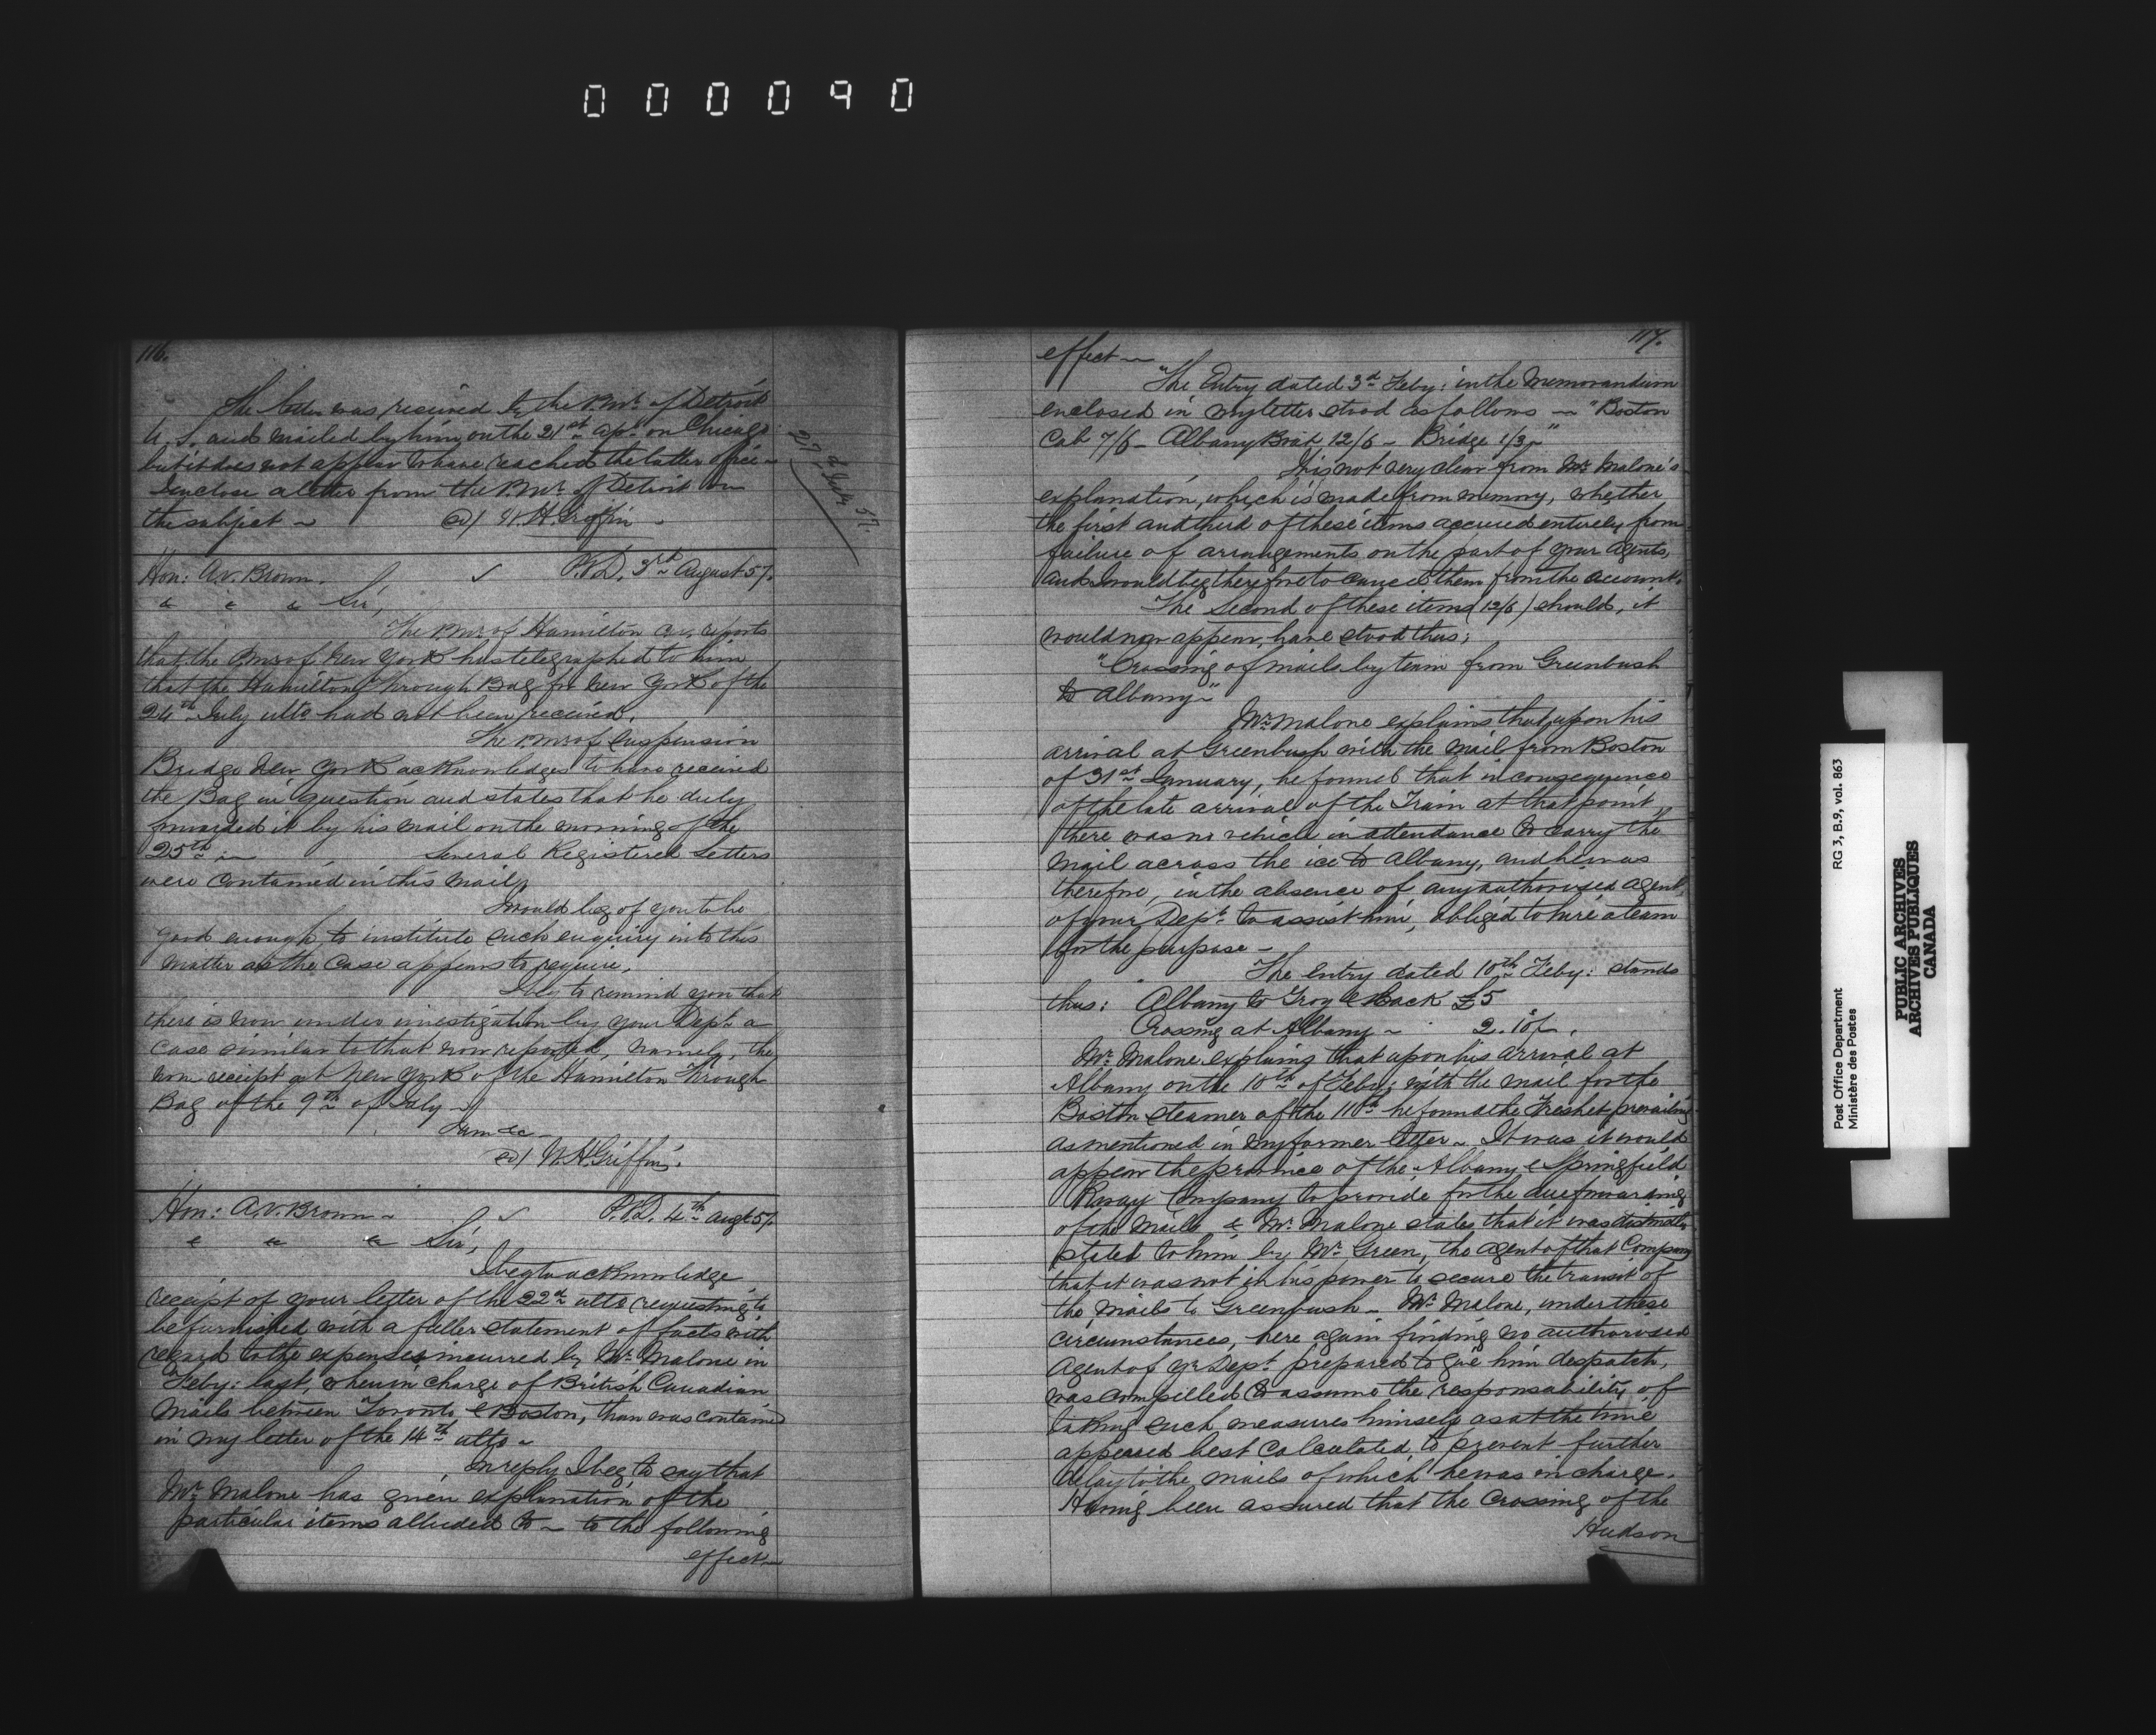 000090
116.
The letter was received by the P.Mr. of Detroit
U.S. and mailed by him on the 21st Apl. on Chicago
but it does not appear to have reached the latter office –
I enclose a letter from the P.Mr. of Detroit on
the subject – W.H. Griffin –
27 July 57.
Hon: A.V. Brown. P.O.D. 3rd August 57.
& & & Sir,
The P.Mr of Hamilton C.W. reports
that the P.Mr of New York has telegraphed to him
that the Hamilton Through Bag for New York of the
24th July ulto had not been received.
The P.Mr of Suspension
Bridge New York acknowledges to have received
the Bag in question and states that he duly
forwarded it by his mail on the morning of the
25th – Several Registered Letters
were contained in this mail,
I would beg of you to be
good enough to institute such enquiry into this
matter as the case appears to require.
I beg to remind you that
there is now under investigation by your Dept. a
case similar to that now reported, namely, the
non receipt at New York of the Hamilton Through
Bag of the 9th of July –
I am &c –
W.H. Griffin.
Hon: A.V. Brown – P.O.D. 4th Augt 57.
& & & Sir,
I beg to acknowledge
receipt of your letter of the 22d ulto requesting to
be furnished with a fuller statement of facts with
regard to the expenses incurred by Mr. Malone in
Feby: last, when in charge of British Canadian
Mails between Toronto & Boston, than was contained
in my letter of the 14th ulto –
In reply I beg to say that
Mr. Malone has given explanation of the
particular items alluded to – to the following
effect –
117.
effect –
"The Entry dated 3d Feby: in the Memorandum
enclosed in my letter stood as follows – "Boston
Cab 7/6 – Albany Boat 12/6 – Bridge 1/3 –"
It is not very clear from Mr. Malone's
explanation, which is made from memory, whether
the first and third of these items accrued entirely from
failure of arrangements on the part of your agents,
and I would beg therefore to cancel them from the account.
The Second of these items (12/6) should, it
would now appear, have stood thus;
"Crossing of mails by team from Greenbush
to Albany –"
Mr. Malone explains that upon his
arrival at Greenbush with the Mail from Boston
of 31st January, he found that in consequence
of the late arrival of the Train at that point,
there was no vehicle in attendance to carry the
mail across the ice to Albany, and he was
therefore, in the absence of any authorised agent
of your Dept. to assist him, obliged to hire a team
for the purpose –
The entry dated 10th Feby: stands
thus: Albany to Troy & back £5
Crossing at Albany – 2.10/-.
Mr. Malone explains that upon his arrival at
Albany on the 10th of Feby: with the mail for the
Boston steamer of the 11th he found the Freshet prevailing
as mentioned in my former letter – It was it would
appear the province of the Albany & Springfield
Rway Company to provide for the due forwarding
of the Mails & Mr. Malone states that it was distinctly
stated to him by Mr. Green, the agent of that Company
that it was not in his power to secure the transit of
the Mails to Greenbush – Mr. Malone, under these
circumstances, here again finding no authorised
Agent of yr. Dept. prepared to give him despatch,
was compelled to assume the responsability of
taking such measures himself as at the time
appeared best calculated to prevent further
delay to the mails of which he was in charge.
Having been assured that the crossing of the
Hudson
Post Office Department RG 3, B.9, vol. 863
Ministère des Postes
PUBLIC ARCHIVES
ARCHIVES PUBLIQUES
CANADA